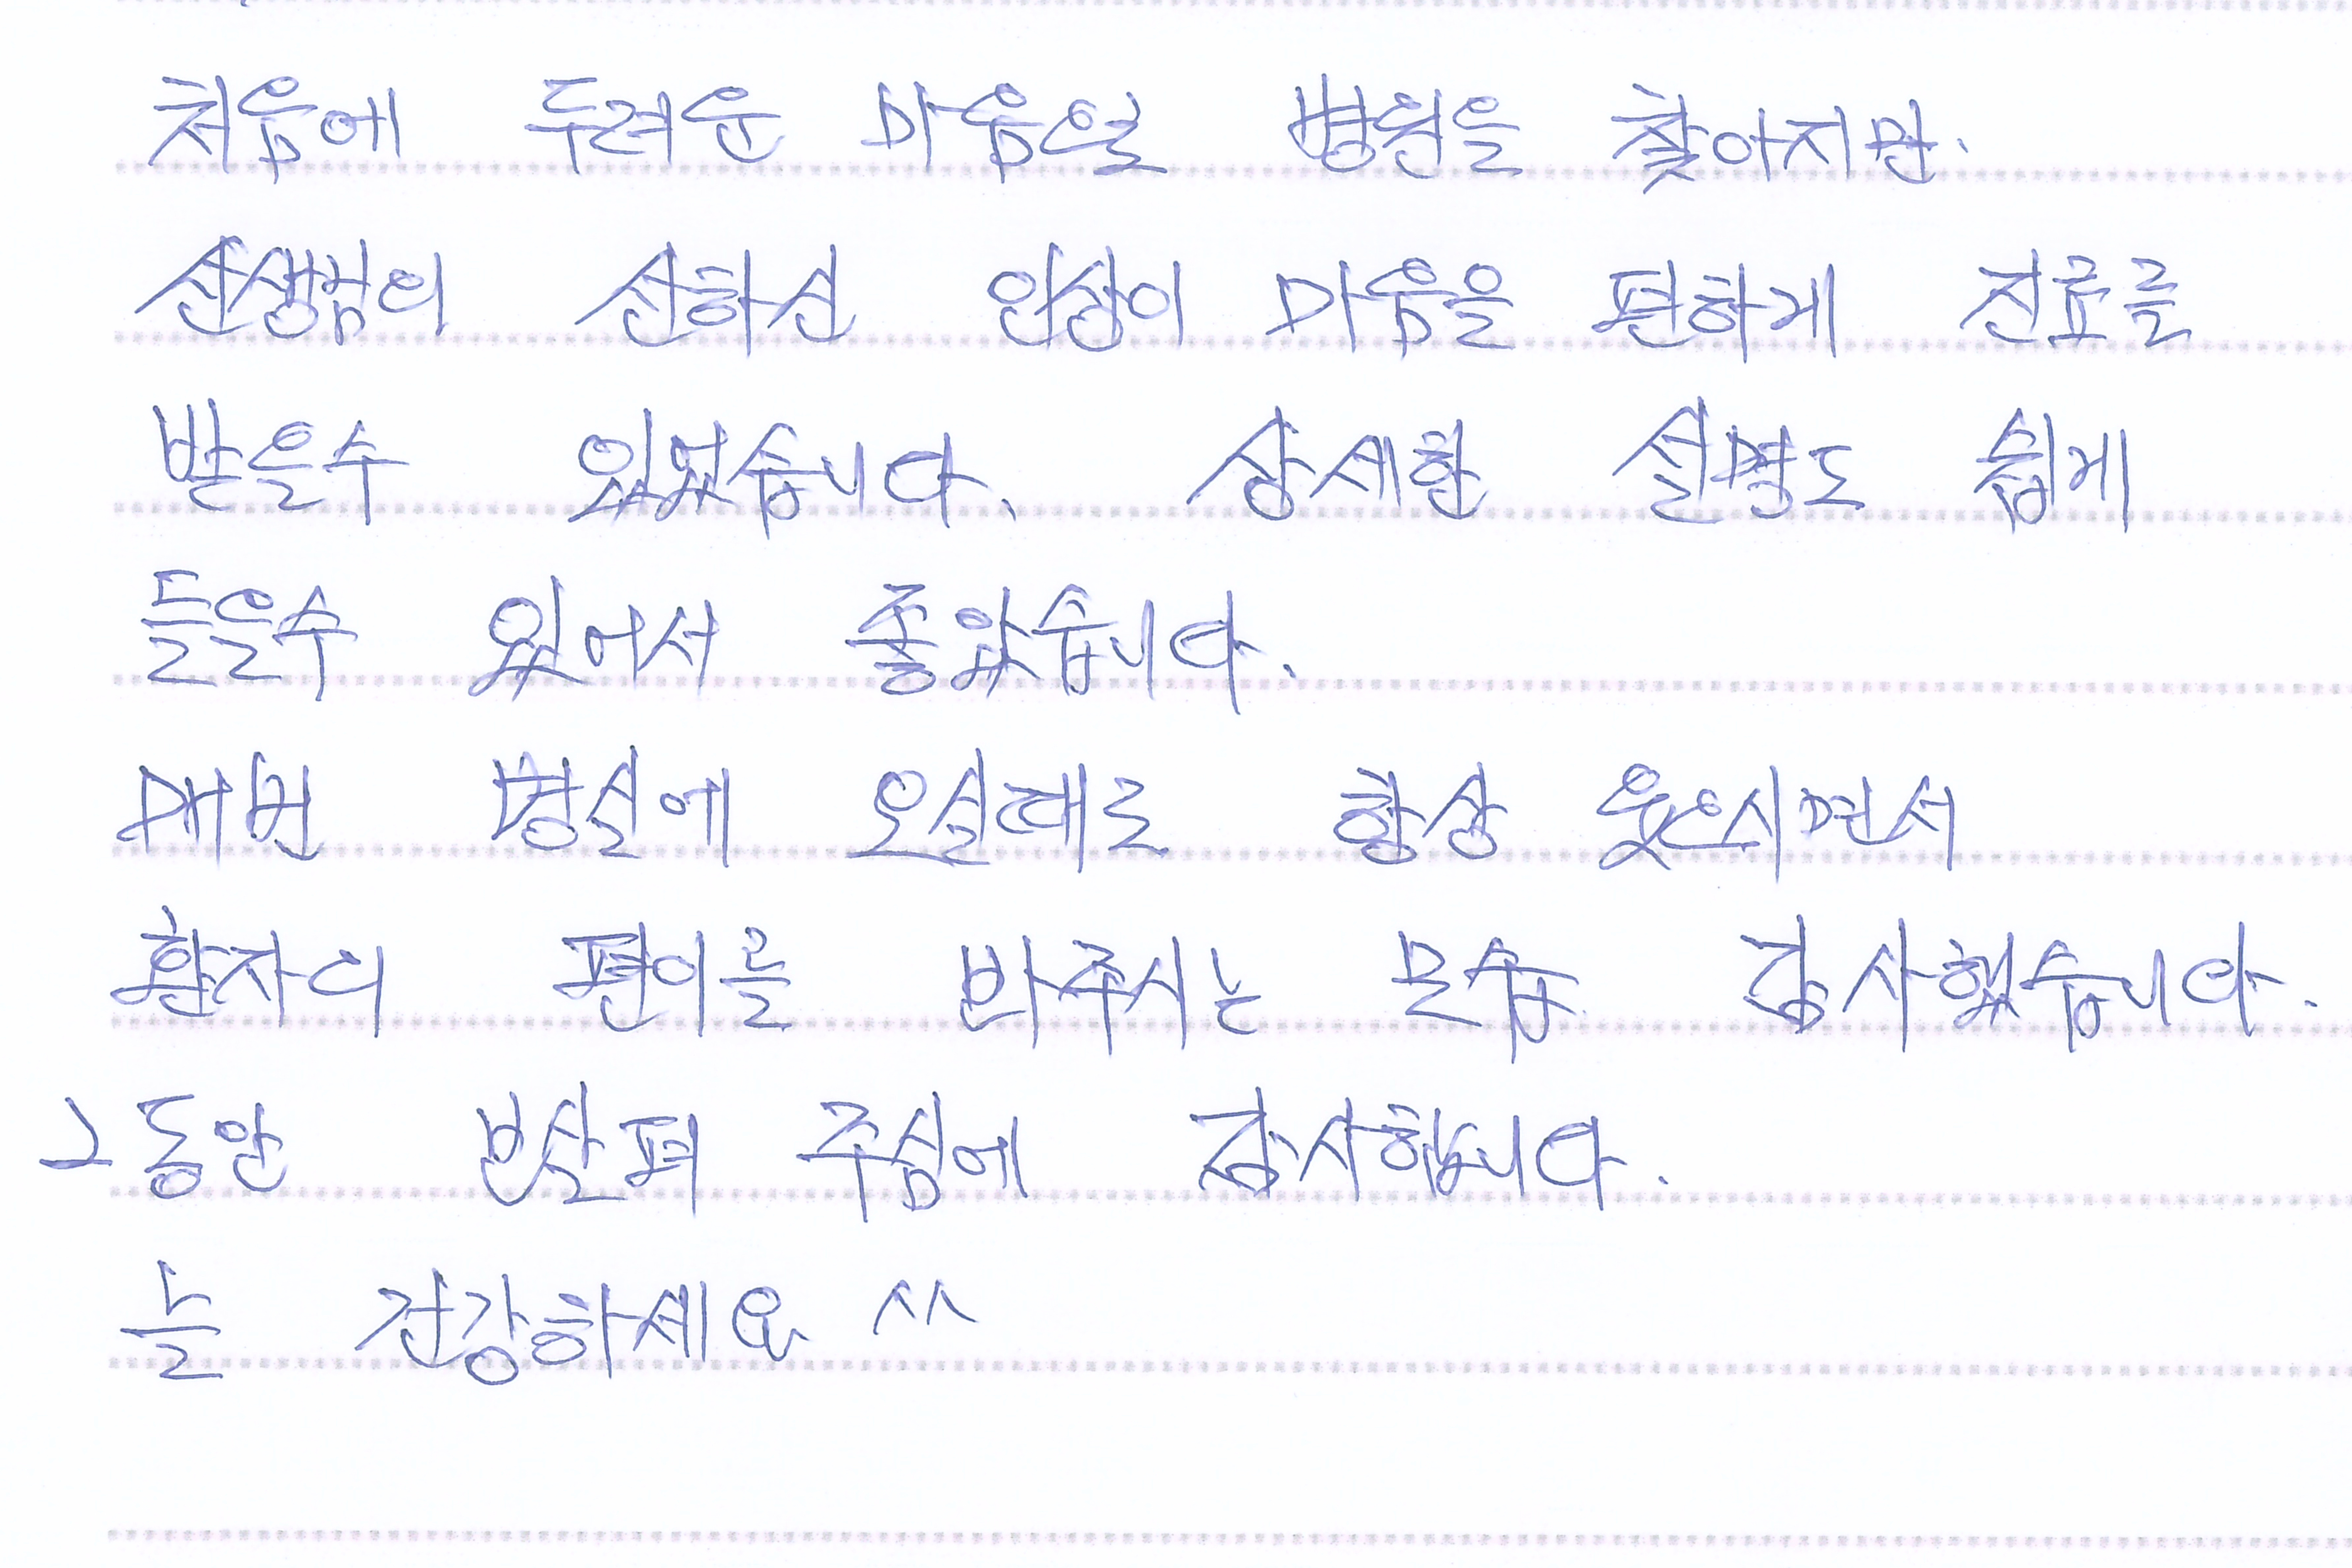 처음에 두려운 마음으로 병원을 찾아지만.
선생님의 선하신 인상이 마음을 편하게 진료를
받을수 있었습니다. 상세한 설명도 쉽게
들을수 있어서 좋았습니다.
매번 병실에 오실때도 항상 웃으시면서
환자의 편의를 봐주시는 모습 감사했습니다.
그동안 보살펴 주심에 감사합니다.
늘 건강하세요 ^^